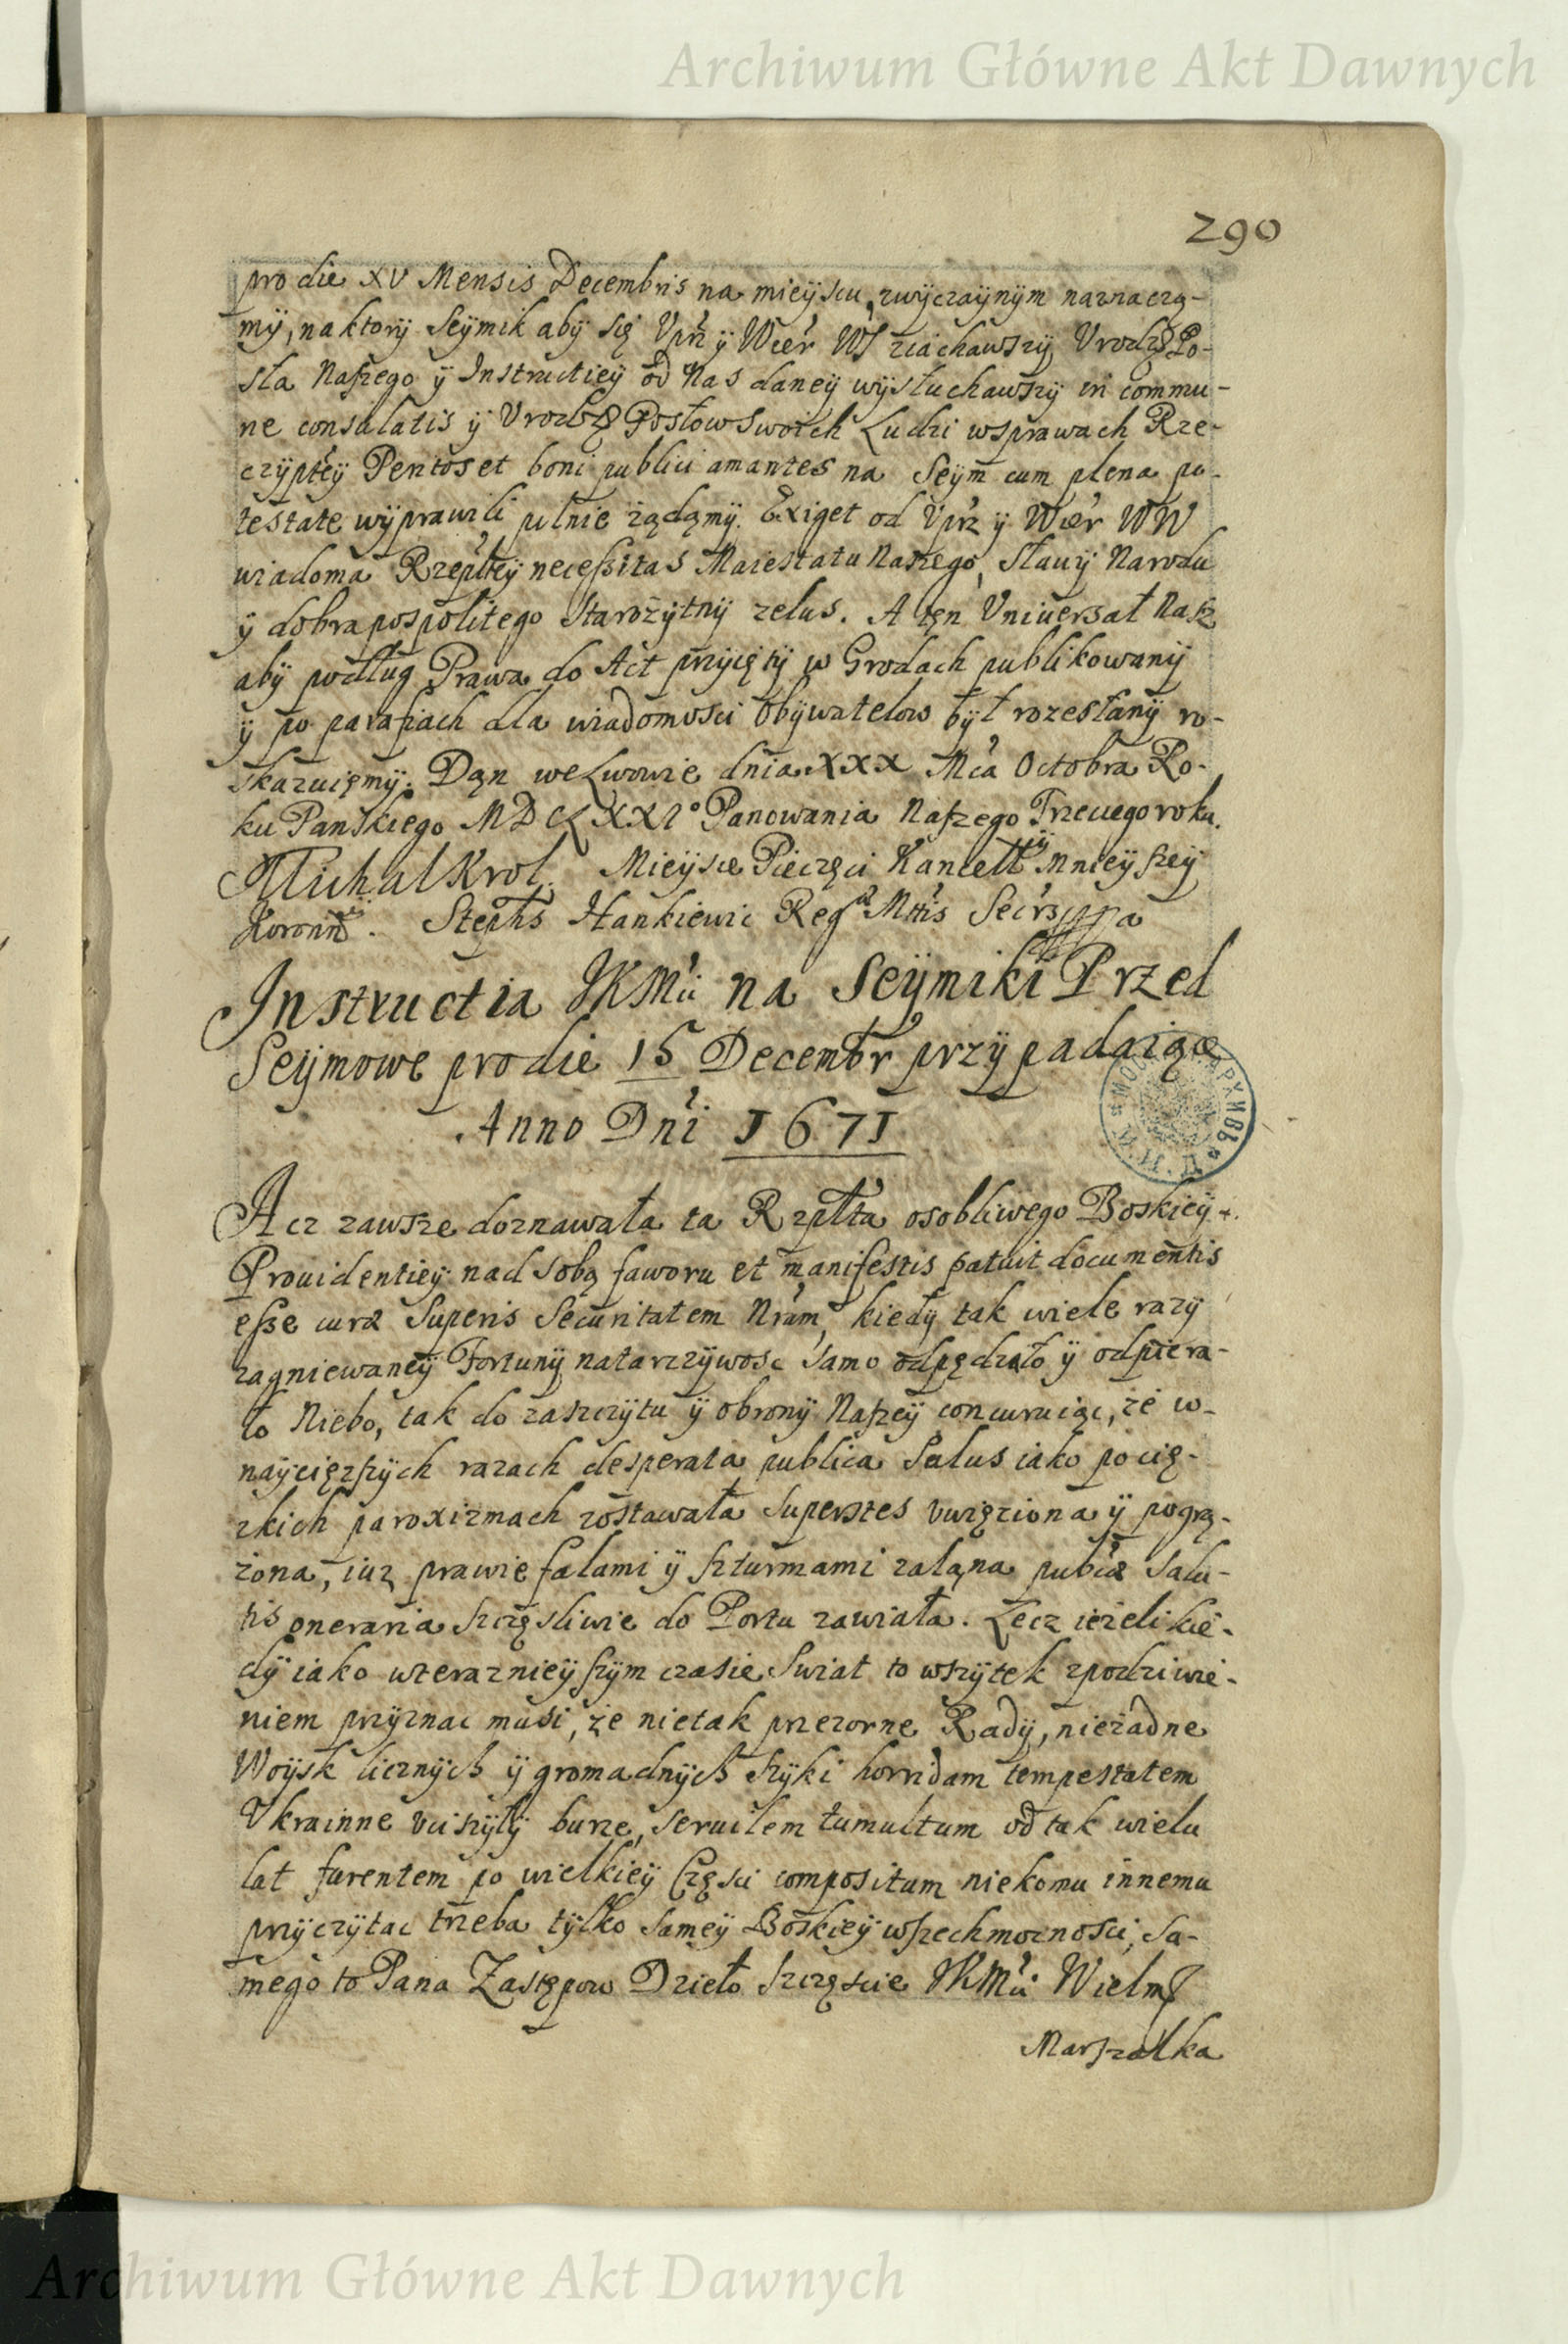 Archiwum Główne Akt Dawnych
290
pro die XV Mensis Decembris na mieyscu zwyczaynym naznaczą-
my, na ktory Seymik aby się Vprz y Wier WW ziachawszy Vrodz Po-
sła Naszego y Instructiey od Nas daney wysłuchawszy in commu-
ne consulatis y Vrodz Posłow Swoich Ludzi w sprawach Rze-
czyptey Peritos et boni publici amantes na Seym cum plena po-
testate wyprawili pilnie żądąmy. Exiget od Vprz y Wier WW
wiadoma Rzeptey necessitas Maiestatu Naszego, Sławy Narodu
y dobra pospolitego Starożytny zelus. A tęn Vniuersał Nasz
aby podług Prawa do Act przyięty w Grodach publikowany
y po parafiach dla wiadomosci Obywatelow był rozesłany ro-
skazuięmy. Dąn we Lwowie dnia XXX Mca Octobra Ro-
ku Panskiego MDCLXXI° Panowania Naszego Trzeciego roku.
Michal Krol. Mieysce Pieczęci Kancell mnieyszey
Koronn. Stephs Hankiewic Reg Mttis Secrs mppa
Instructia JKMci na Seymiki Przed
Seymowe pro die 15 Decembr przypadaiące
Anno Dni 1671
Acz zawsze doznawała ta Rzpłta osobliwego Boskiey
Prouidentiey nad sobą faworu et manifestis patuit documentis
esse curæ Superis Securitatem Nram, kiedy tak wiele razy
zagniewaney Fortuny natarczywosc samo odpędzało y odpiera-
ło Niebo, tak do zaszczytu y obrony Naszey concuruiąc, że w-
naycięzszych razach desperata publica Salus iako po cię-
zkich paroxizmach zostawała Superstes vwięziona y pogrą-
żona, iuz prawie falami y szturmami zaląna pubcæ Salu-
tis oneraria szczęsliwie do Portu zawiała. Lecz ieżeli kie-
dy iako w teraznieyszym czasie Swiat to wszytek z podziwie-
niem przyznac musi, że nie tak przezorne Rady, nie żadne
Woysk licznych y gromadnych szyki horridam tempestatem
Vkrainne vciszyły burze, seruilem tumultum od tak wielu
lat furentem po wielkiey Części compositum niekomu innemu
przyczytac trzeba tylko samey Boskiey wszechmocnosci, Sa-
mego to Pana Zastępow Dzieło szczęscie JKMci Wielm
Marszalka
Archiwum Główne Akt Dawnych